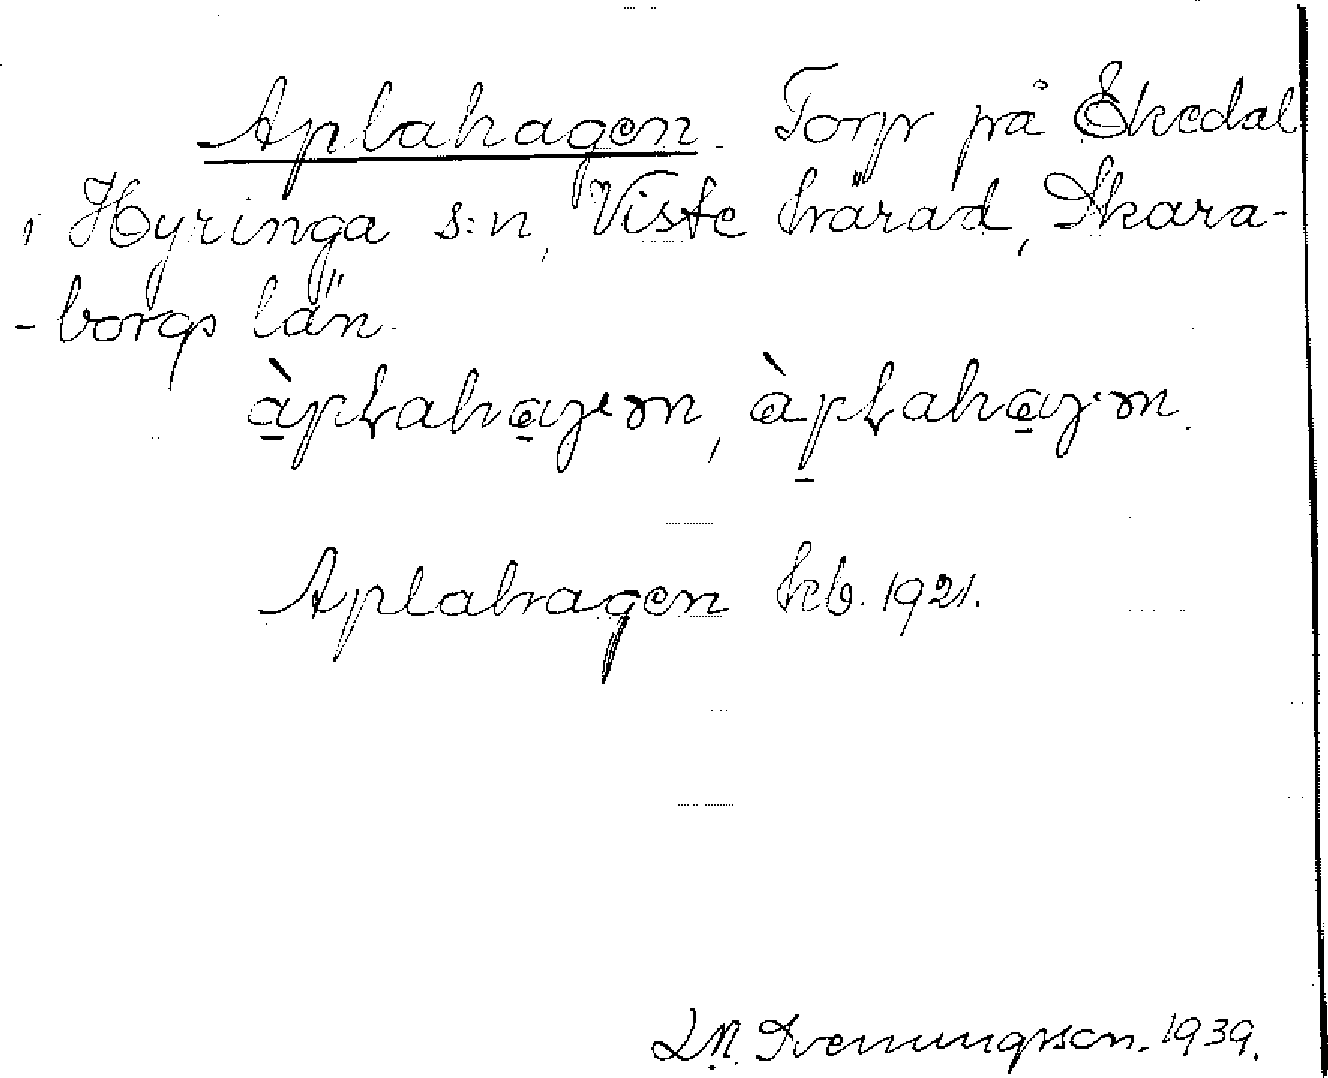 Aplahagen. Torp på Ekedal
i Hyringa s:n, Viste härad, Skara-
-borgs län.
àpɫahaɡən, àpɫahaɡən.
Aplahagen kb. 1921.
L.N. Svenungsson. 1939.